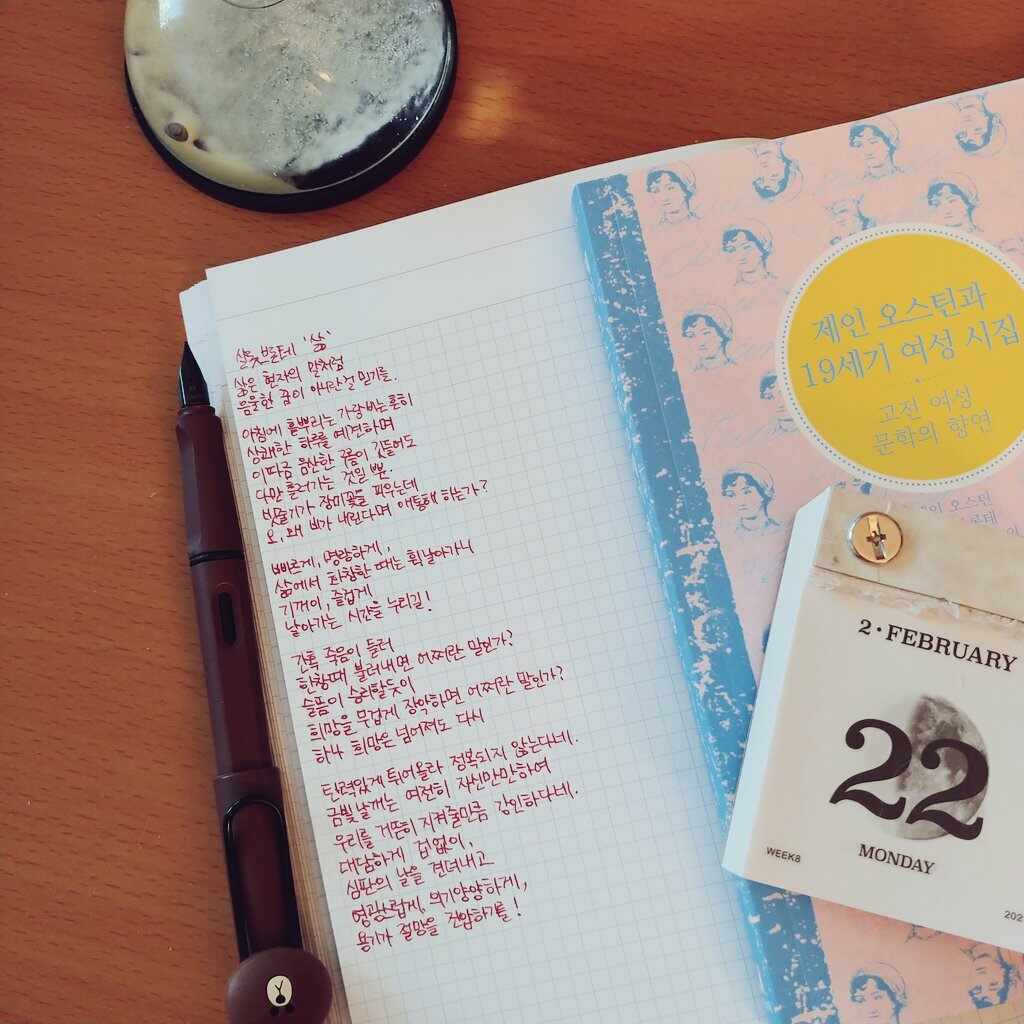 샬롯 브론테 '삶'
삶은 현자의 말처럼
음울한 꿈이 아니란 걸 믿기를.
아침에 흩뿌리는 가랑비는 흔히
상쾌한 하루를 예견하며
이따금 음산한 구름이 깃들어도
다만 흘러가는 것일 뿐.
빗줄기가 장미꽃을 피우는데
오, 왜 비가 내린다며 애통해 하는가?
빠르게, 명랑하게,
삶에서 화창한 때는 휙 날아가니
기꺼이, 즐겁게
날아가는 시간을 누리길!
간혹 죽음이 들러
한창때 불러내면 어쩌란 말인가?
슬픔이 승리할듯이
희망을 무겁게 장악하면 어쩌란 말인가?
하나 희망은 넘어져도 다시
탄력있게 튀어올라 정복되지 않는다네.
금빛 날개는 여전히 자신만만하여
우리를 거뜬히 지켜줄만큼 강인하다네.
대담하게 겁없이,
심판의 날을 견뎌내고
영광스럽게, 의기양양하게,
용기가 절망을 진압하기를!
제인 오스틴과
19세기 여성 시집
고전 여성
문학의 향연
제인 오스틴
2·FEBRUARY
22
WEEK8
MONDAY